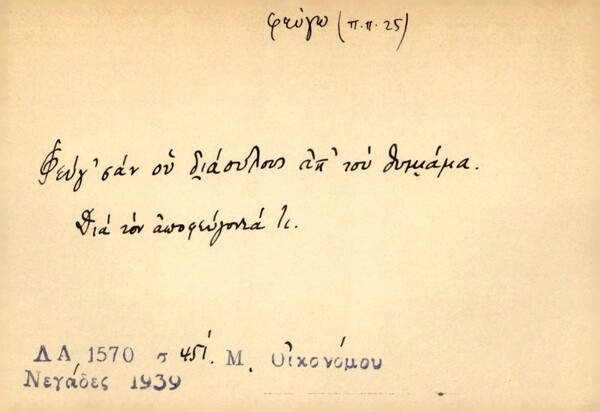 φεύγω (π.π. 25)
Φεύγ' σάν οὑ διάουλους ἀπ' τοὺ θυμιάμα.
Διά τὸν ἀποφεύγοντά τι.
ΛΑ 1570 σ 451. Μ. Οἰκονόμου
Νεγάδες 1939